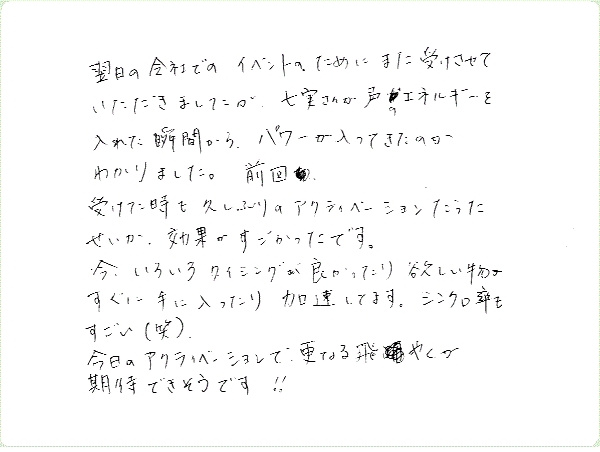 翌日の会社でのイベントのためにまた受けさせて
いただきましたが、七実さんが声のエネルギーを
入れた瞬間から、パワーが入ってきたのが
わかりました。前回
受けた時も久しぶりのアクティベーションだった
せいか、効果がすごかったです。
今、いろいろタイミングが良かったり欲しい物が
すぐに手に入ったり加速してます。シンクロ率も
すごい(笑)。
今日のアクティベーションで、更なる飛やくが
期待できそうです!!